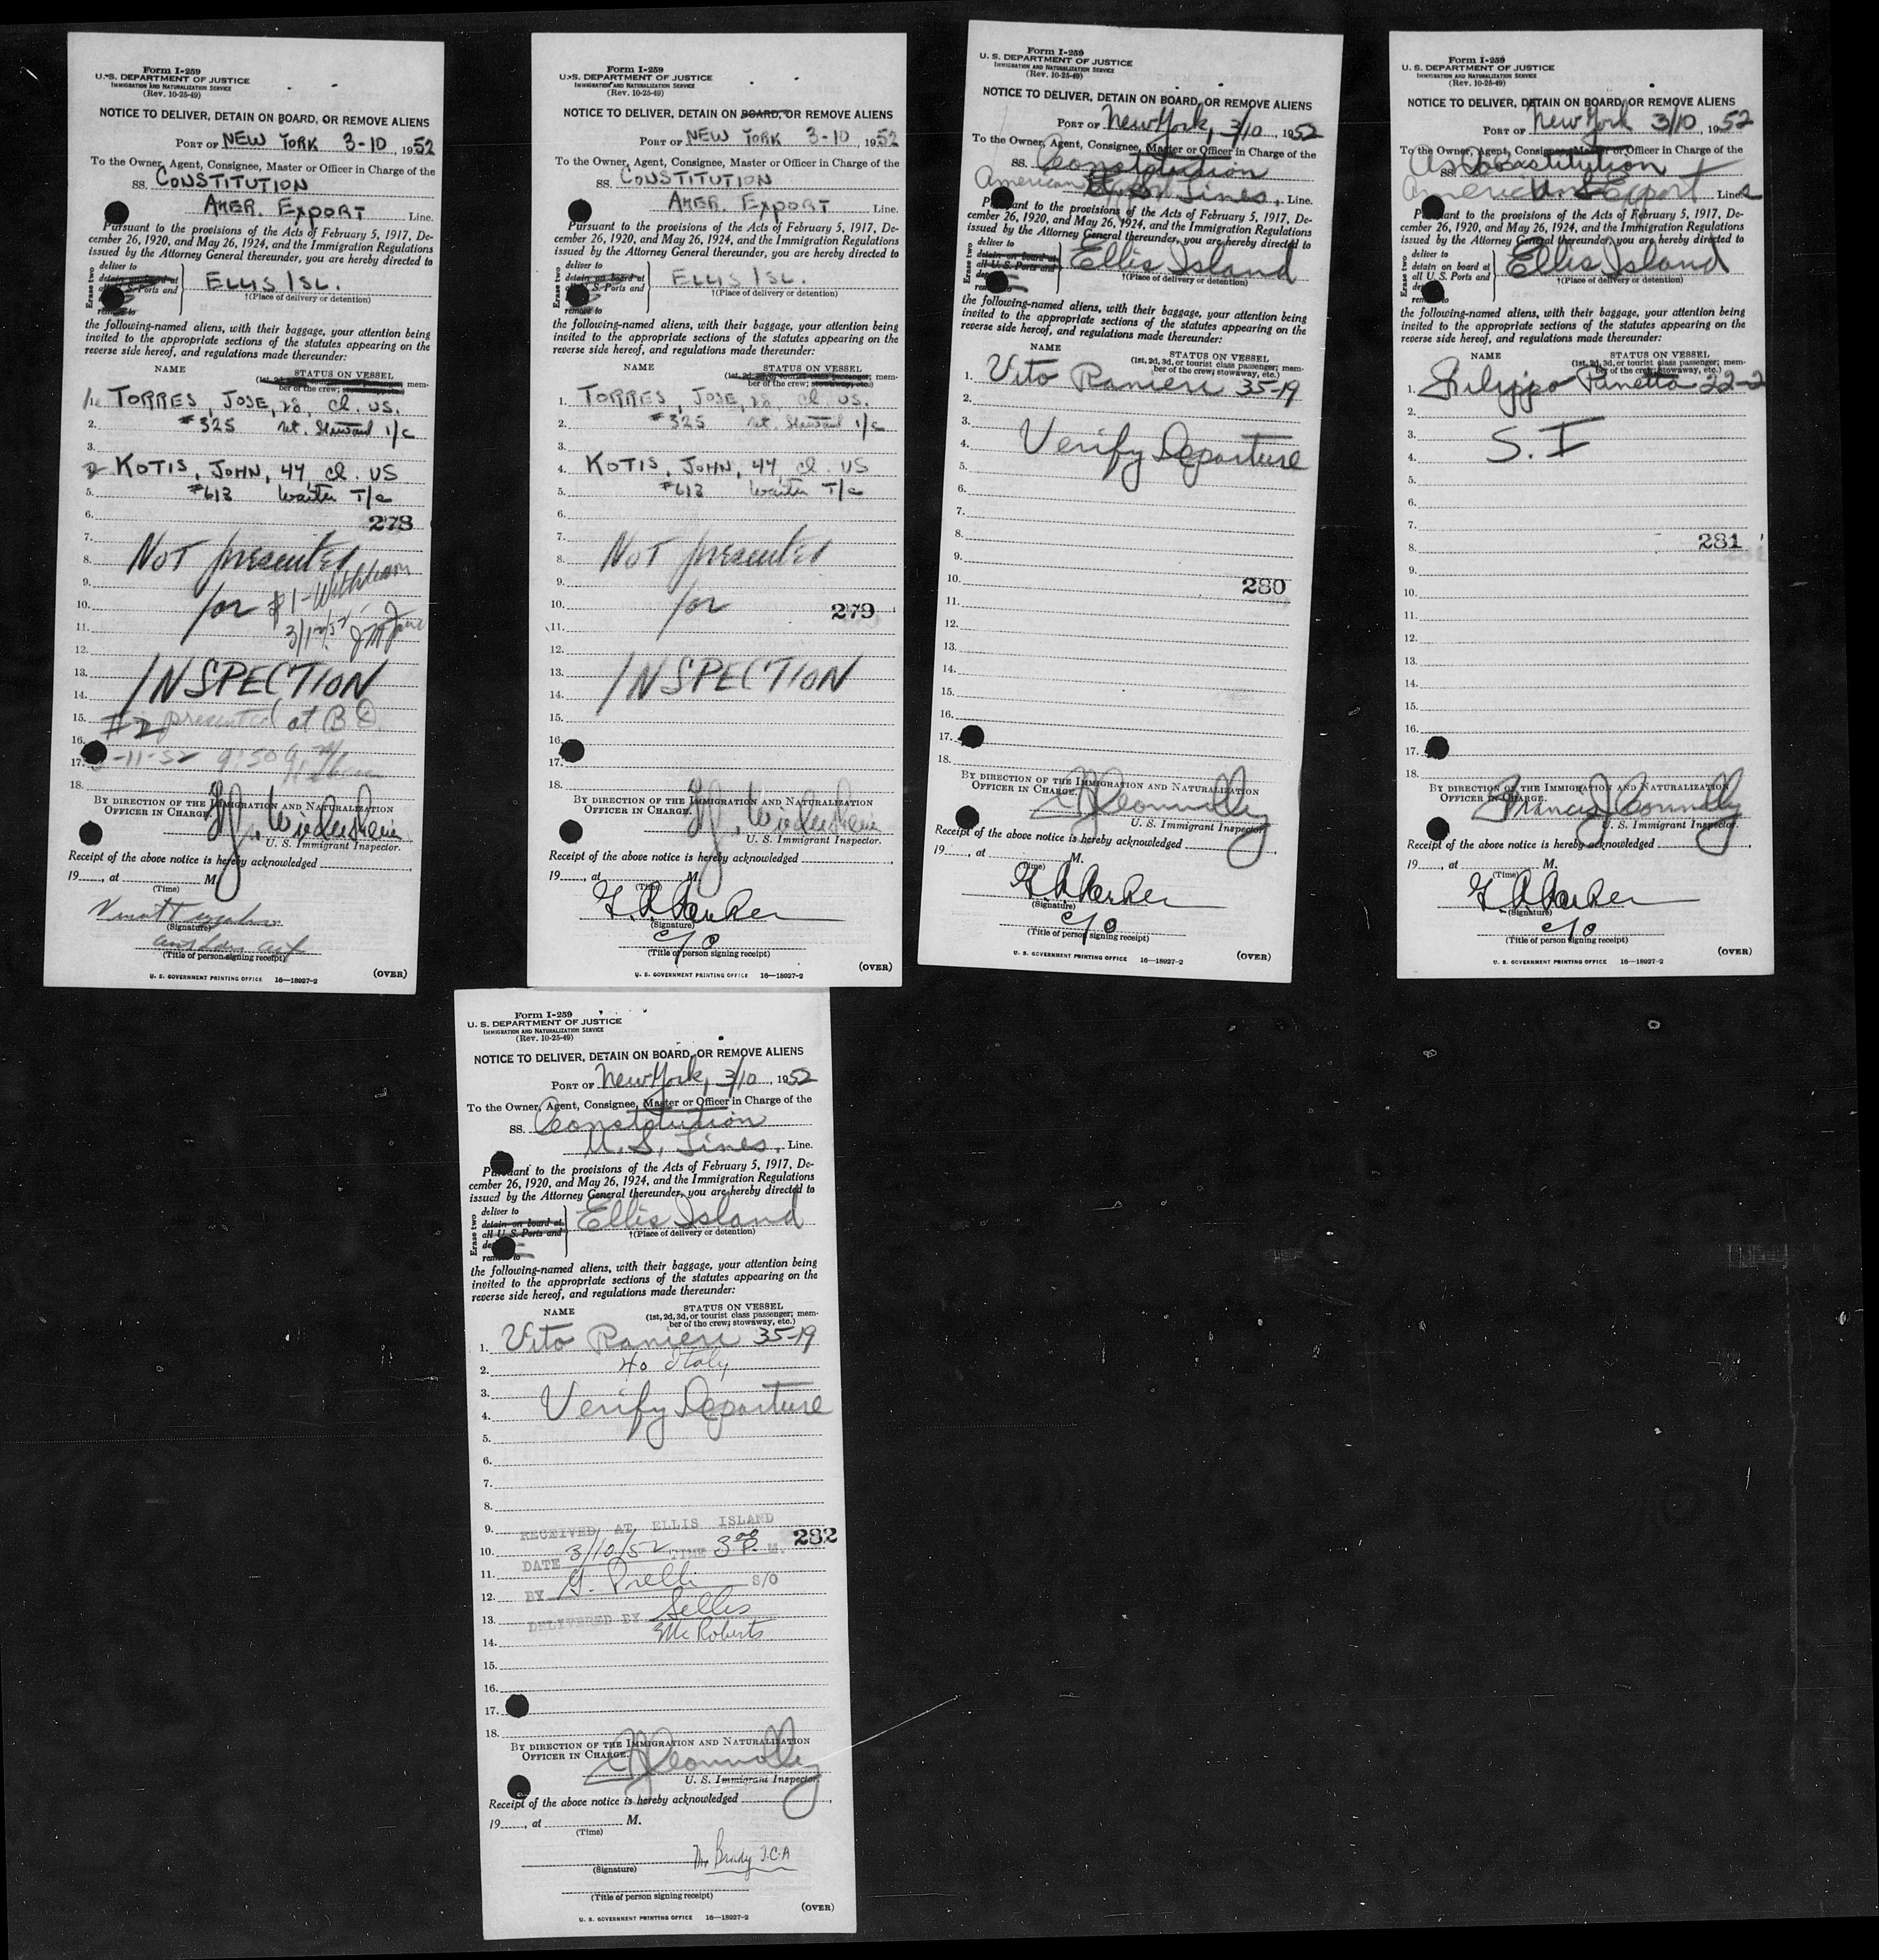 Form I-259
U. S. DEPARTMENT OF JUSTICE
IMMIGRATION AND NATURALIZATION SERVICE
(Rev. 10-25-49)
NOTICE TO DELIVER, DETAIN ON BOARD, OR REMOVE ALIENS
PORT OF NEW YORK 3-10, 1952
To the Owner, Agent, Consignee, Master or Officer in Charge of the
SS. CONSTITUTION
AMER. EXPORT Line.
Pursuant to the provisions of the Acts of February 5, 1917, De-
cember 26, 1920, and May 26, 1924, and the Immigration Regulations
issued by the Attorney General thereunder, you are hereby directed to
Erase two
deliver to
detain on board at
all U. S. Ports and
remove to
ELLIS ISL.
†(Place of delivery or detention)
the following-named aliens, with their baggage, your attention being
invited to the appropriate sections of the statutes appearing on the
reverse side hereof, and regulations made thereunder:
NAME STATUS ON VESSEL
(1st, 2d, 3d, or tourist class passenger; mem-
ber of the crew; stowaway, etc.)
1. TORRES, JOSE, 28, cl. US.
2. #325 Ut. Steward 1/c
3.
2 KOTIS, JOHN, 44 cl. US
5. #613 Waiter T/c
6. 278
7.
8. NOT presented
9.
10. for #1-
11. 3/12/52
12.
13. INSPECTION
14.
15. #2 presented at B
16.
17. 3-11-52 9:50
18.
BY DIRECTION OF THE IMMIGRATION AND NATURALIZATION
OFFICER IN CHARGE.
U. S. Immigrant Inspector.
Receipt of the above notice is hereby acknowledged
19, at M.
(Time)
(Signature)
(Title of person signing receipt)
U. S. GOVERNMENT PRINTING OFFICE 16—18927-2
(OVER)
Form I-259
U. S. DEPARTMENT OF JUSTICE
IMMIGRATION AND NATURALIZATION SERVICE
(Rev. 10-25-49)
NOTICE TO DELIVER, DETAIN ON BOARD, OR REMOVE ALIENS
PORT OF NEW YORK 3-10, 1952
To the Owner, Agent, Consignee, Master or Officer in Charge of the
SS. CONSTITUTION
AMER. EXPORT Line.
Pursuant to the provisions of the Acts of February 5, 1917, De-
cember 26, 1920, and May 26, 1924, and the Immigration Regulations
issued by the Attorney General thereunder, you are hereby directed to
Erase two
deliver to
detain on board at
all U. S. Ports and
remove to
ELLIS ISL.
†(Place of delivery or detention)
the following-named aliens, with their baggage, your attention being
invited to the appropriate sections of the statutes appearing on the
reverse side hereof, and regulations made thereunder:
NAME STATUS ON VESSEL
(1st, 2d, 3d, or tourist class passenger; mem-
ber of the crew; stowaway, etc.)
1. TORRES, JOSE, 28, cl. US.
2. #325 Ut. Steward 1/c
3.
4. KOTIS, JOHN, 44 cl. US
5. #613 Waiter T/c
6.
7.
8. NOT presented
9.
10. for 279
11.
12.
13. INSPECTION
14.
15.
16.
17.
18.
BY DIRECTION OF THE IMMIGRATION AND NATURALIZATION
OFFICER IN CHARGE.
U. S. Immigrant Inspector.
Receipt of the above notice is hereby acknowledged
19, at M.
(Time)
(Signature)
c/o
(Title of person signing receipt)
U. S. GOVERNMENT PRINTING OFFICE 16—18927-2
(OVER)
Form I-259
U. S. DEPARTMENT OF JUSTICE
IMMIGRATION AND NATURALIZATION SERVICE
(Rev. 10-25-49)
NOTICE TO DELIVER, DETAIN ON BOARD, OR REMOVE ALIENS
PORT OF New York, 3/10, 1952
To the Owner, Agent, Consignee, Master or Officer in Charge of the
SS. Constitution
American Lines, Line.
Pursuant to the provisions of the Acts of February 5, 1917, De-
cember 26, 1920, and May 26, 1924, and the Immigration Regulations
issued by the Attorney General thereunder, you are hereby directed to
Erase two
deliver to
detain on board at
all U. S. Ports and
remove to
Ellis Island
†(Place of delivery or detention)
the following-named aliens, with their baggage, your attention being
invited to the appropriate sections of the statutes appearing on the
reverse side hereof, and regulations made thereunder:
NAME STATUS ON VESSEL
(1st, 2d, 3d, or tourist class passenger; mem-
ber of the crew; stowaway, etc.)
1. Vito Ranieri 35-19
2.
3.
4. Verify Departure
5.
6.
7.
8.
9.
10. 280
11.
12.
13.
14.
15.
16.
17.
18.
BY DIRECTION OF THE IMMIGRATION AND NATURALIZATION
OFFICER IN CHARGE.
FJConnolly
U. S. Immigrant Inspector.
Receipt of the above notice is hereby acknowledged
19, at M.
(Time)
(Signature)
c/o
(Title of person signing receipt)
U. S. GOVERNMENT PRINTING OFFICE 16—18927-2
(OVER)
Form I-259
U. S. DEPARTMENT OF JUSTICE
IMMIGRATION AND NATURALIZATION SERVICE
(Rev. 10-25-49)
NOTICE TO DELIVER, DETAIN ON BOARD, OR REMOVE ALIENS
PORT OF New York 3/10, 1952
To the Owner, Agent, Consignee, Master or Officer in Charge of the
SS Constitution
American Export Lines
Pursuant to the provisions of the Acts of February 5, 1917, De-
cember 26, 1920, and May 26, 1924, and the Immigration Regulations
issued by the Attorney General thereunder, you are hereby directed to
Erase two
deliver to
detain on board at
all U. S. Ports and
remove to
Ellis Island
†(Place of delivery or detention)
the following-named aliens, with their baggage, your attention being
invited to the appropriate sections of the statutes appearing on the
reverse side hereof, and regulations made thereunder:
NAME STATUS ON VESSEL
(1st, 2d, 3d, or tourist class passenger; mem-
ber of the crew; stowaway, etc.)
1. Filippo Panetta 22-2
2.
3. S. I
4.
5.
6.
7.
8. 281
9.
10.
11.
12.
13.
14.
15.
16.
17.
18.
BY DIRECTION OF THE IMMIGRATION AND NATURALIZATION
OFFICER IN CHARGE.
Francis J Connolly
U. S. Immigrant Inspector.
Receipt of the above notice is hereby acknowledged
19, at M.
(Time)
(Signature)
c/o
(Title of person signing receipt)
U. S. GOVERNMENT PRINTING OFFICE 16—18927-2
(OVER)
Form I-259
U. S. DEPARTMENT OF JUSTICE
IMMIGRATION AND NATURALIZATION SERVICE
(Rev. 10-25-49)
NOTICE TO DELIVER, DETAIN ON BOARD, OR REMOVE ALIENS
PORT OF New York, 3/10, 1952
To the Owner, Agent, Consignee, Master or Officer in Charge of the
SS. Constitution
U. S. Lines, Line.
Pursuant to the provisions of the Acts of February 5, 1917, De-
cember 26, 1920, and May 26, 1924, and the Immigration Regulations
issued by the Attorney General thereunder, you are hereby directed to
Erase two
deliver to
detain on board at
all U. S. Ports and
remove to
Ellis Island
†(Place of delivery or detention)
the following-named aliens, with their baggage, your attention being
invited to the appropriate sections of the statutes appearing on the
reverse side hereof, and regulations made thereunder:
NAME STATUS ON VESSEL
(1st, 2d, 3d, or tourist class passenger; mem-
ber of the crew; stowaway, etc.)
1. Vito Ranieri 35-19
2. 40 Italy
3.
4. Verify Departure
5.
6.
7.
8.
9. RECEIVED AT ELLIS ISLAND
10. DATE 3/10/52 TIME 3 00 P. M. 282
11.
12. BY G. Prelli S/O
13. DELIVERED BY Sellis
14. McRoberts
15.
16.
17.
18.
BY DIRECTION OF THE IMMIGRATION AND NATURALIZATION
OFFICER IN CHARGE.
FJConnolly
U. S. Immigrant Inspector.
Receipt of the above notice is hereby acknowledged
19, at M.
(Time)
Mr Brady I.C.A
(Signature)
(Title of person signing receipt)
U. S. GOVERNMENT PRINTING OFFICE 16—18927-2
(OVER)